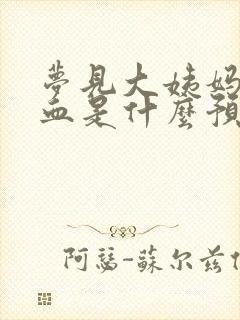 夢見大姨媽
血是什麼預
阿瑟-蘇尔兹